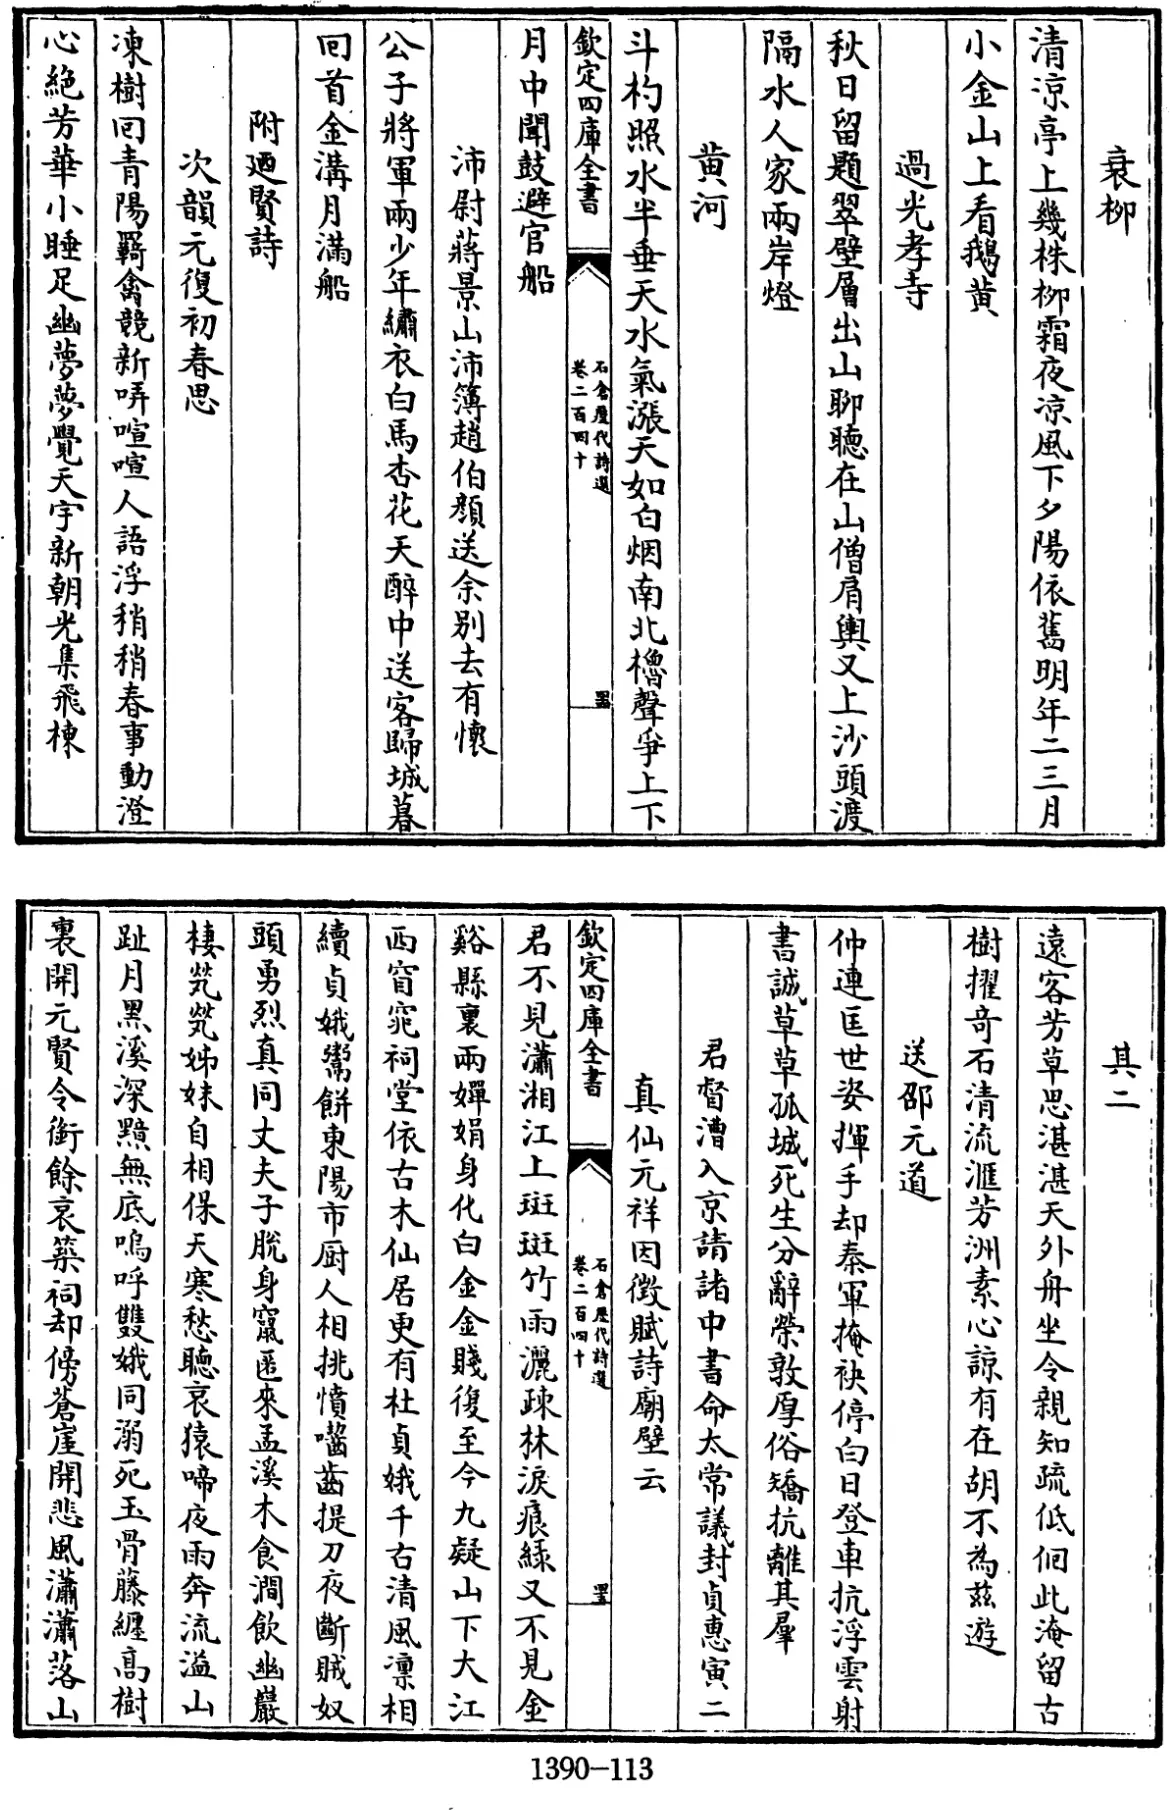 衰柳
清涼亭上幾株柳霜夜凉風下夕陽依舊明年二三月
小金山上看鵝黄
過光孝寺
秋日留題翠壁層出山聊聽在山僧肩輿又上沙頭渡
隔水人家兩岸燈
黄河
斗杓照水半垂天水氣漲天如白烟南北櫓聲爭上下
欽定四庫全書
石倉歷代詩選
卷二百四十
月中聞鼓避官船
沛尉蔣景山沛簿趙伯顔送余别去有懷
公子將軍兩少年繡衣白馬杏花天醉中送客歸城暮
回首金溝月滿船
附廼賢詩
次韻元復初春思
凍樹回青陽羇禽競新哢喧喧人語浮稍稍春事動澄
心絶芳華小睡足幽夢夢覺天宇新朝光集飛棟
其二
遠客芳草思湛湛天外舟坐令親知疏低徊此淹留古
樹擢奇石清流滙芳洲素心諒有在胡不為兹遊
送邵元道
仲連匡世姿揮手却秦軍掩袂停白日登車抗浮雲射
書誠草草孤城死生分辭榮敦厚俗矯抗離其羣
君督漕入京請諸中書命太常議封貞惠寅二
真仙元祥因徴賦詩廟壁云
君不見瀟湘江上斑斑竹雨灑疎林淚痕緑又不見金
欽定四庫全書
石倉歷代詩選
卷二百四十
谿縣裏兩嬋娟身化白金金賤復至今九疑山下大江
西窅窕祠堂依古木仙居更有杜貞娥千古清風凛相
續貞娥鬻餅東陽市厨人相挑憤嚙齒提刀夜斷賊奴
頭勇烈真同丈夫子脱身竄匿來孟溪木食澗飲幽巖
棲煢煢姊妹自相保天寒愁聽哀猿啼夜雨奔流溢山
趾月黑溪深黯無底嗚呼雙娥同溺死玉骨藤纒高樹
裏開元賢令銜餘哀築祠却傍蒼崖開悲風瀟瀟落山
1390-113